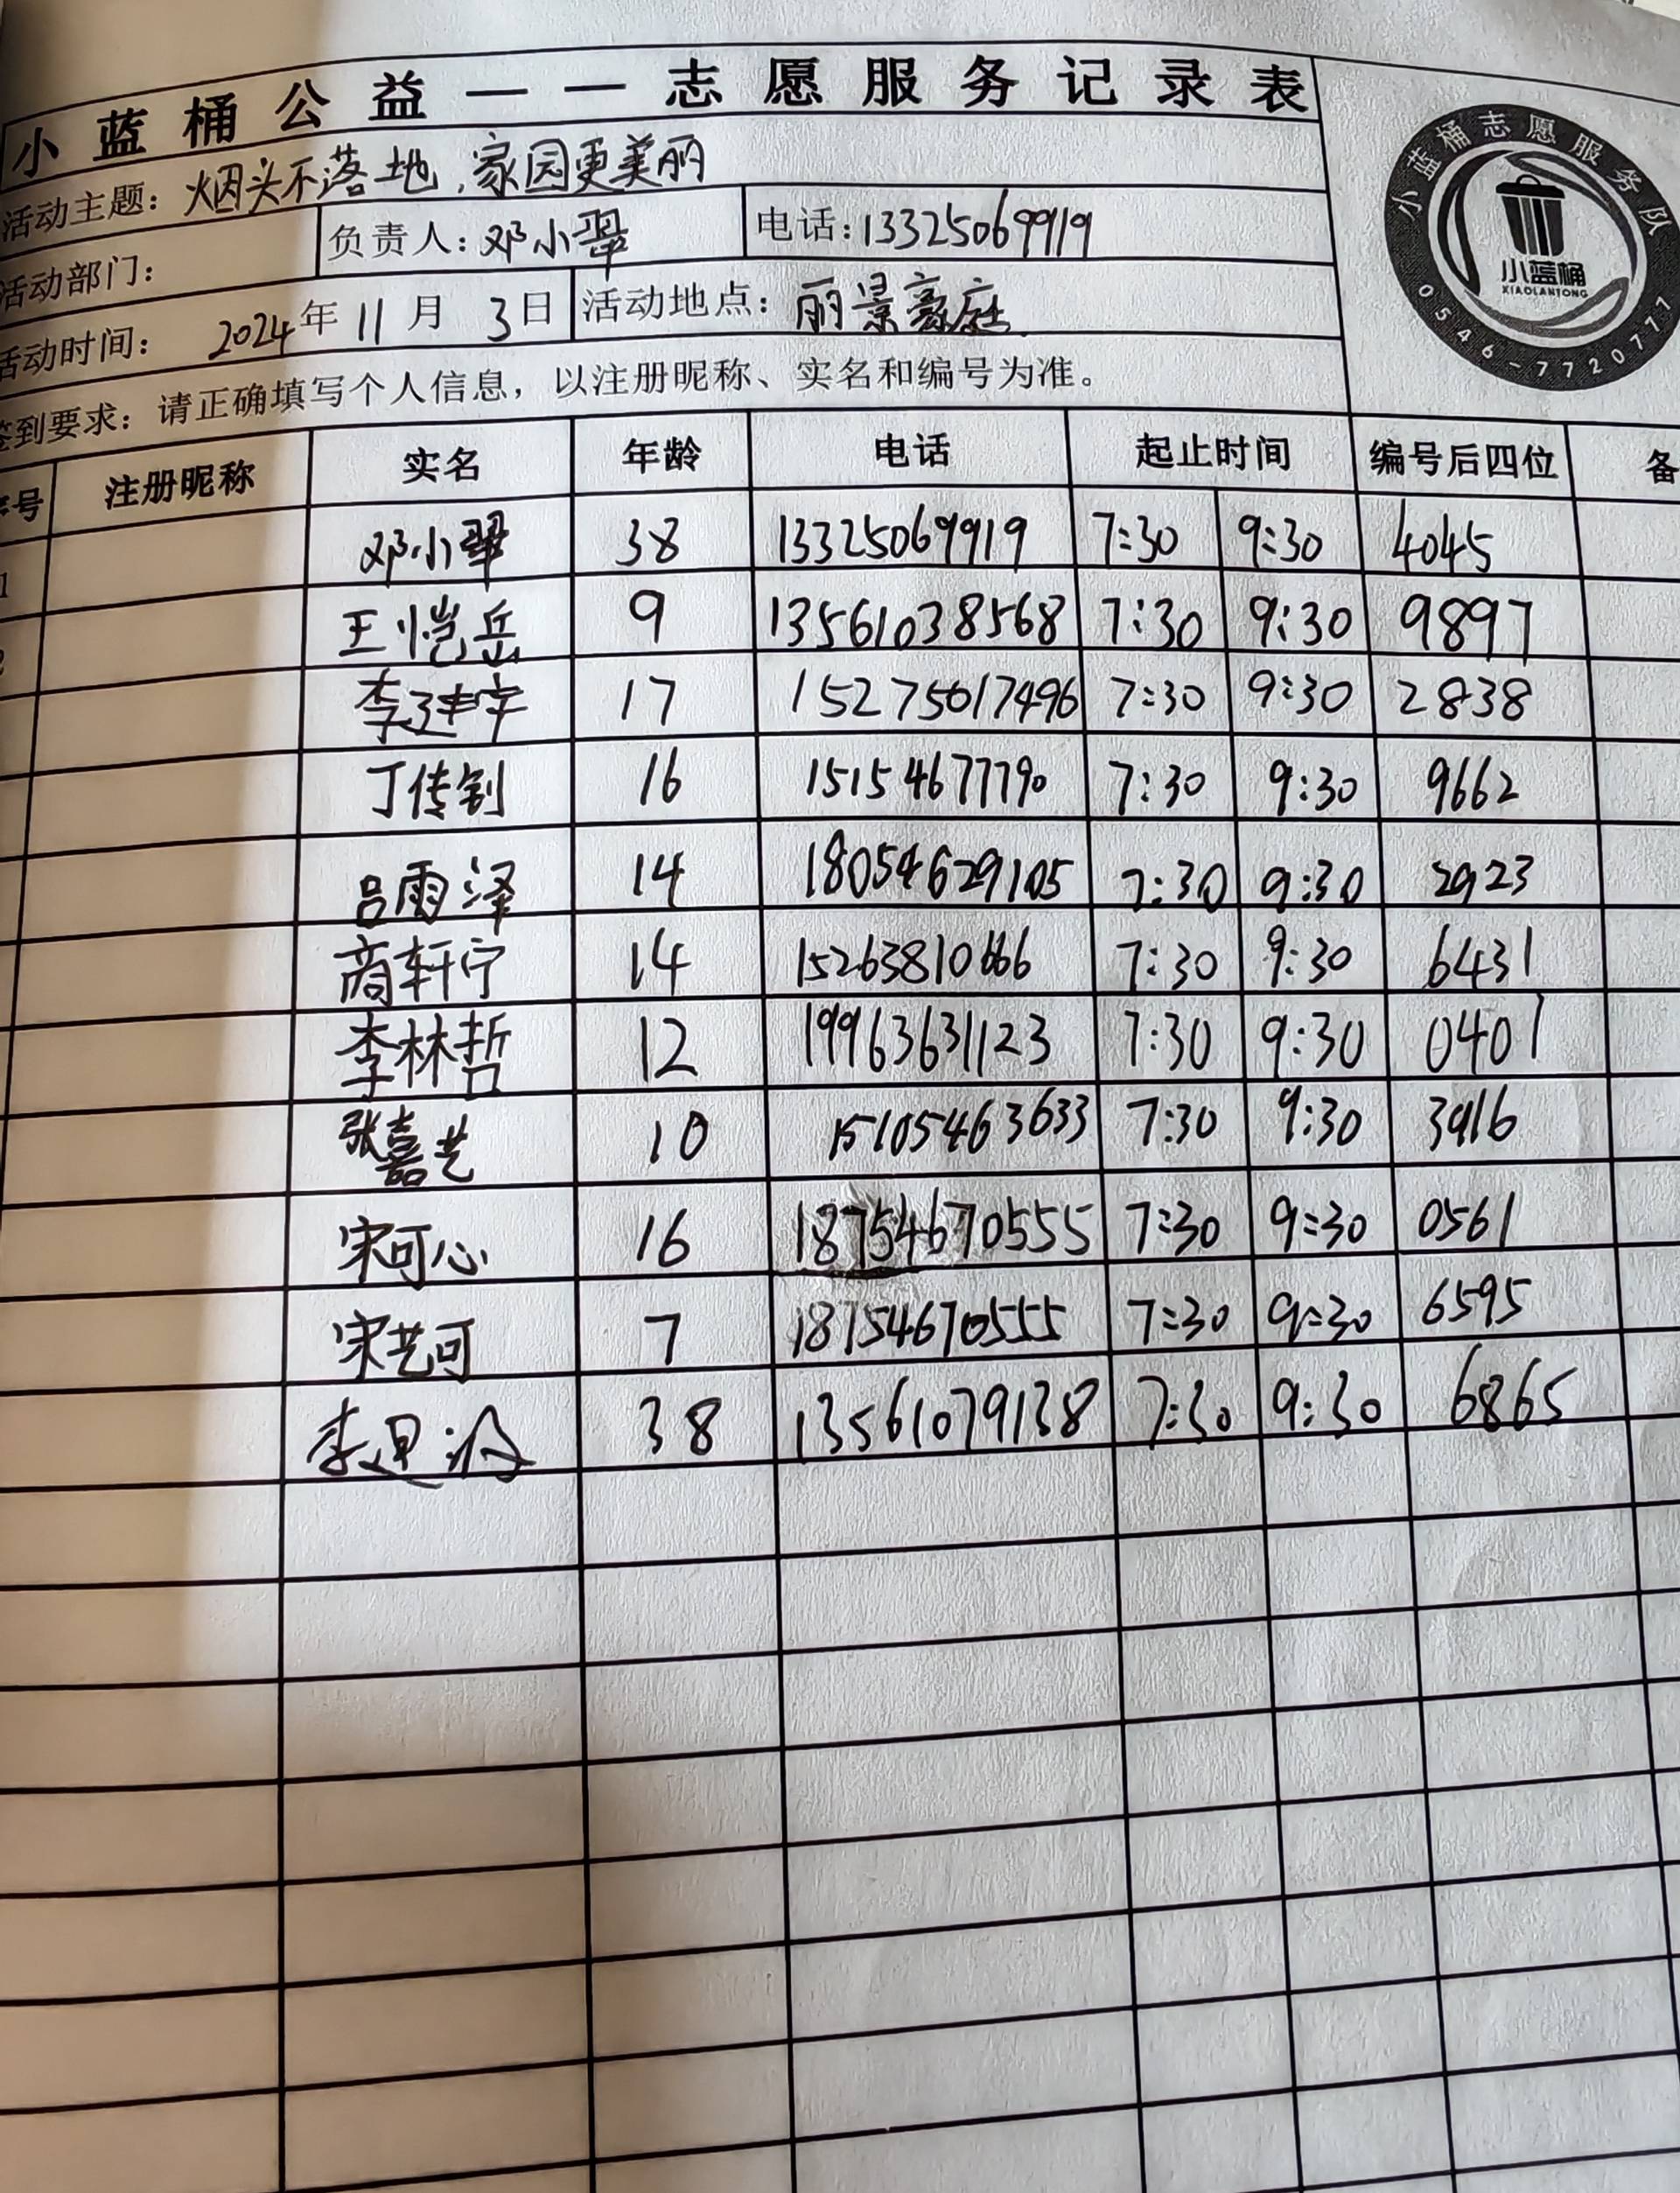 小蓝桶公益——志愿服务记录表
活动主题：烟头不落地，家园更美丽
活动部门： 负责人：邓小翠 电话：13325069919
活动时间： 2024年11月3日 活动地点：丽景豪庭
签到要求：请正确填写个人信息，以注册昵称、实名和编号为准。
小蓝桶志愿服务队
小蓝桶
XIAOLANTONG
0546-7720777
序号 注册昵称 实名 年龄 电话 起止时间 编号后四位 备
1 邓小翠 38 13325069919 7:30 9:30 4045
2 王恺岳 9 13561038568 7:30 9:30 9897
李建宇 17 15275017496 7:30 9:30 2838
丁传钊 16 15154677790 7:30 9:30 9662
吕雨泽 14 18054629105 7:30 9:30 2923
商轩宁 14 15263810666 7:30 9:30 6431
李林哲 12 19963631123 7:30 9:30 0401
张嘉艺 10 15105463633 7:30 9:30 3916
宋可心 16 18754670555 7:30 9:30 0561
宋艺可 7 18754670555 7:30 9:30 6595
李 38 13561079138 7:30 9:30 6865